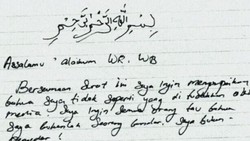 بسم الله الرحمن الرحيم
Assalamu 'alaikum WR. WB
Bersamaan surat ini saya ingin menyampaikan
bahwa saya tidak seperti yang di tuduhkan oleh
media. Saya ingin semua orang tau bahwa
saya bukanlah seorang bandar. Saya bukan